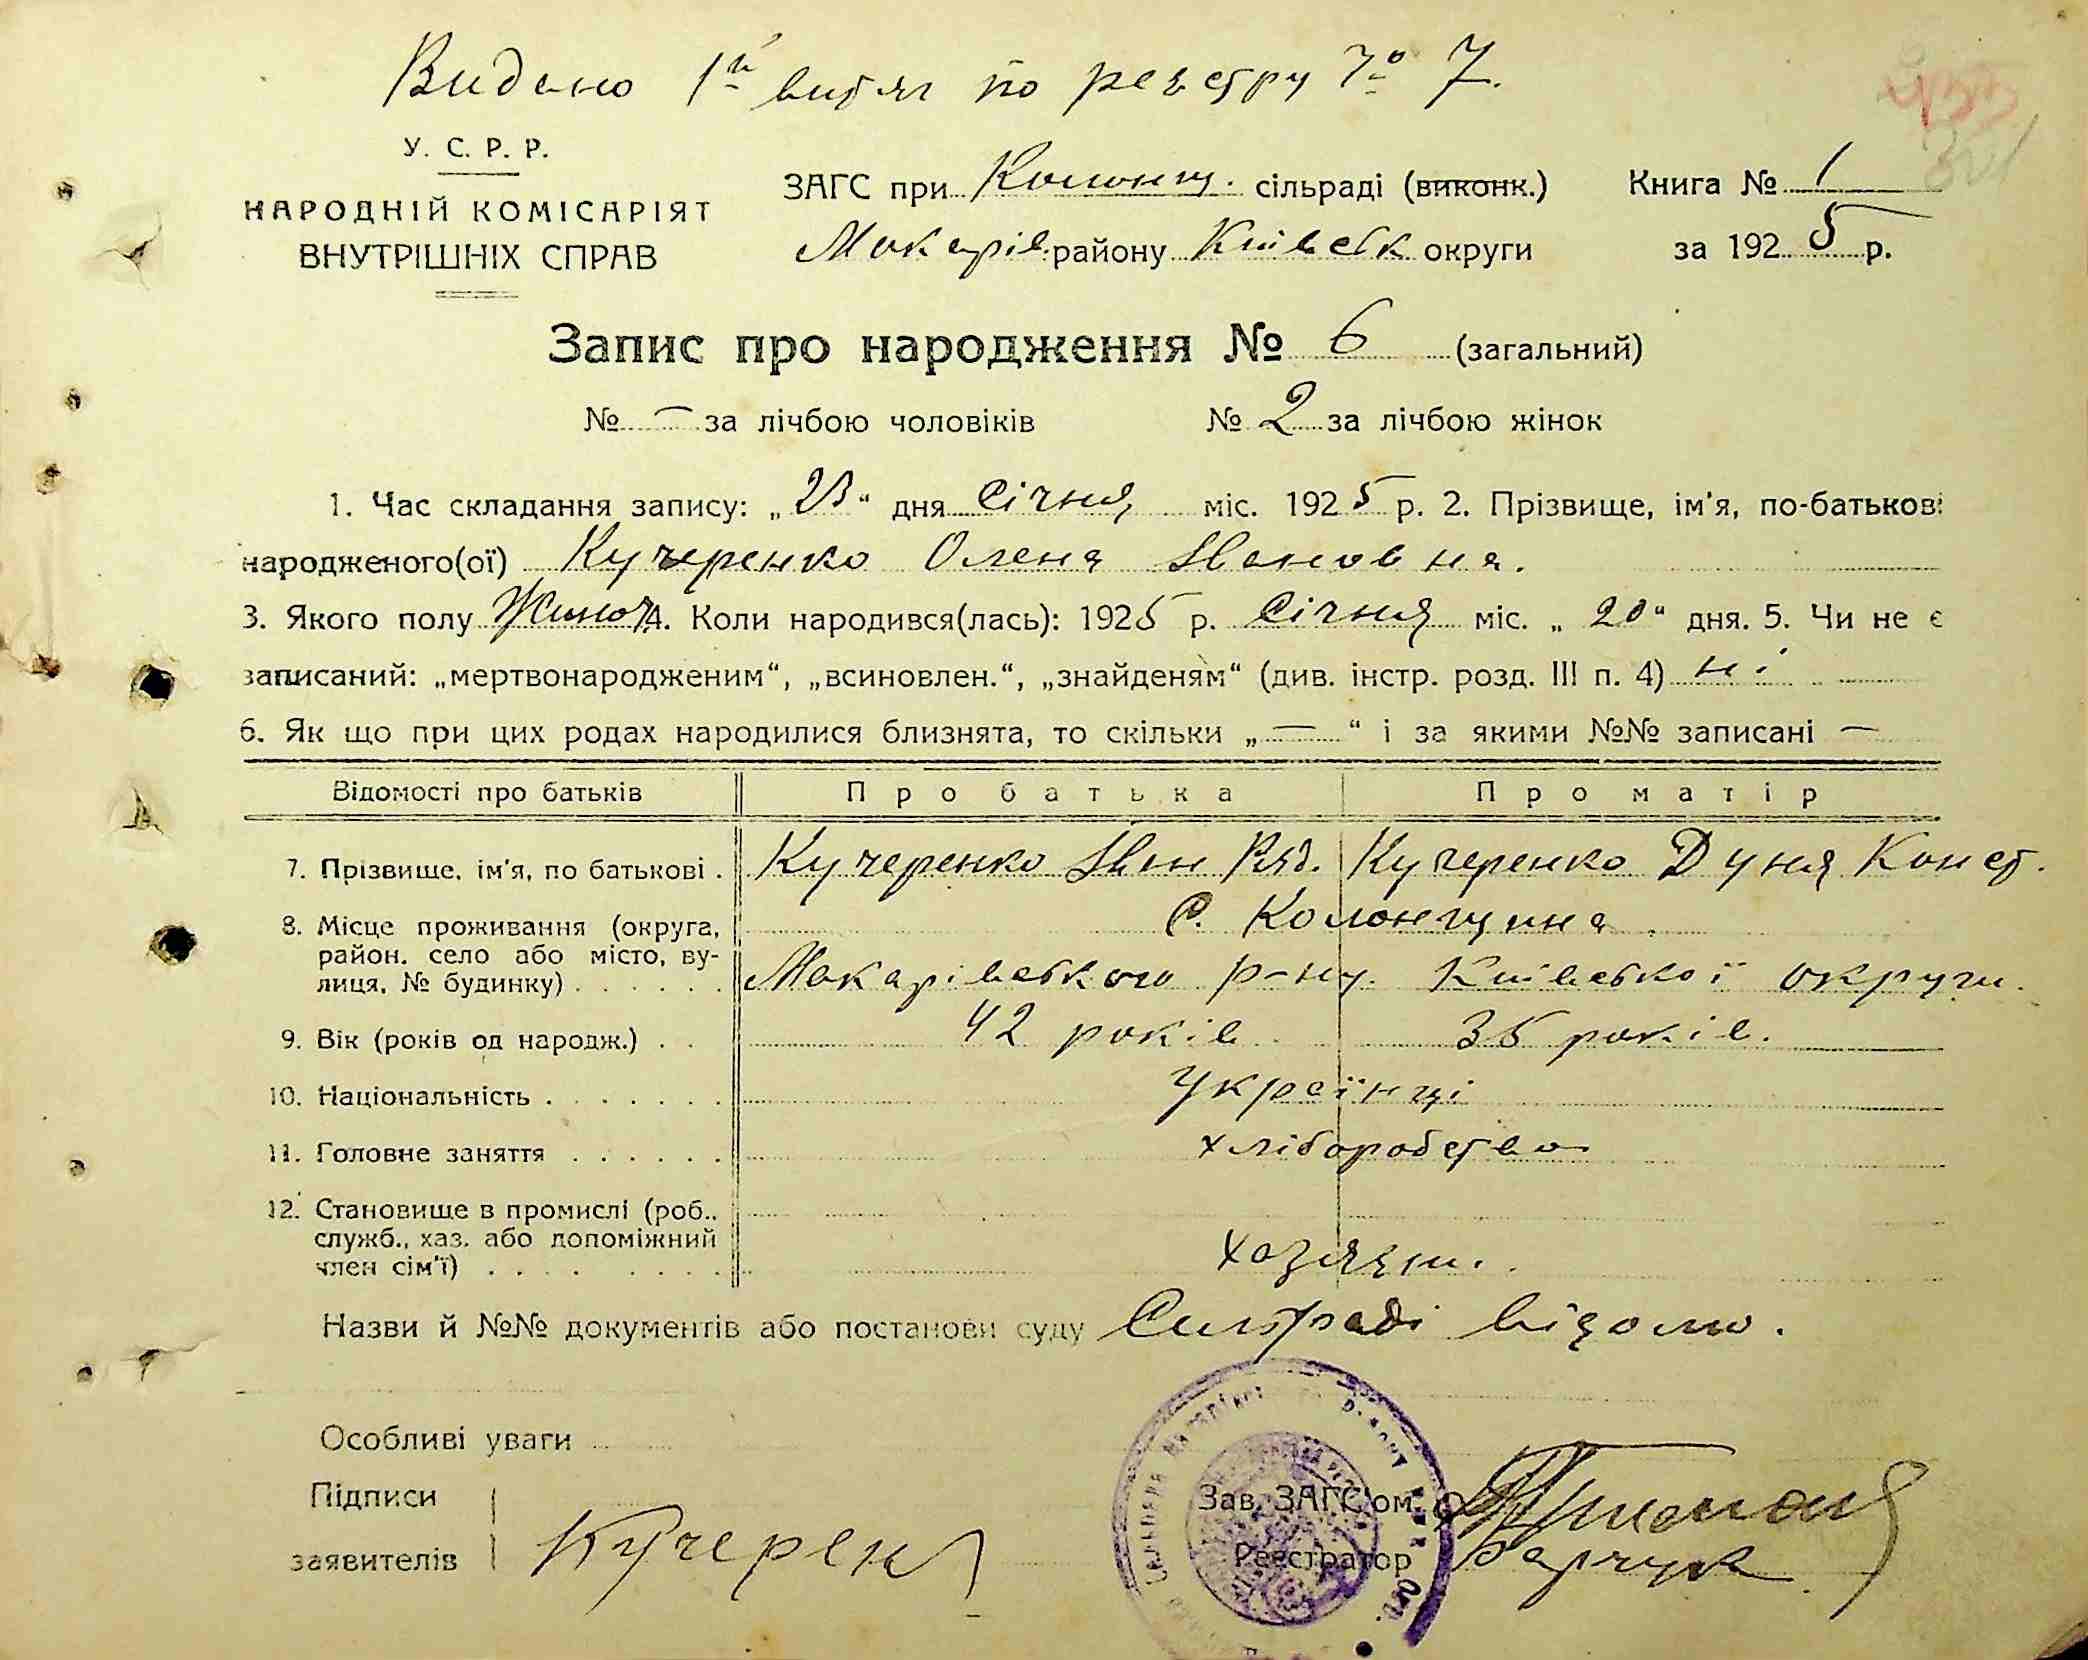 Видано 1й витяг по реєстру № 7.
У. С. Р. Р.
НАРОДНІЙ КОМІСАРІЯТ
ВНУТРІШНІХ СПРАВ
ЗАГС при Колонщ. сільраді (виконк.)
Макарів. району Київськ округи
Книга № 1
за 1925 р.
Запис про народження № 6 (загальний)
№ — за лічбою чоловіків № 2 за лічбою жінок
1. Час складання запису: „23“ дня Січня міс. 1925 р. 2. Прізвище, ім'я, по-батькові
народженого(ої) Кучеренко Олена Івановна.
3. Якого полу Жіноч. 4. Коли народився(лась): 1925 р. Січня міс. „20“ дня. 5. Чи не є
записаний: „мертвонародженим“, „всиновлен.“, „знайденям“ (див. інстр. розд. III п. 4) ні
6. Як що при цих родах народилися близнята, то скільки „—“ і за якими №№ записані —
Відомості про батьків Про батька Про матір
7. Прізвище, ім'я, по батькові . Кучеренко Іван Кучеренко Дуня Конст.
8. Місце проживання (округа, С. Колонщина
район. село або місто, ву-
лиця, № будинку) . . . . . . Макарівського р-ну. Київської округи.
9. Вік (років од народж.) . . 42 років 35 років.
10. Національність . . . . . . . Українці
11. Головне заняття . . . . . . хліборобство
12. Становище в промислі (роб.,
служб., хаз. або допоміжний
член сім'ї) . . . . . . . . хозяїни.
Назви й №№ документів або постанови суду Сильраді відомо.
Особливі уваги
Підписи
заявителів Кучерен
Зав. ЗАГС'ом
Реєстратор Барчук